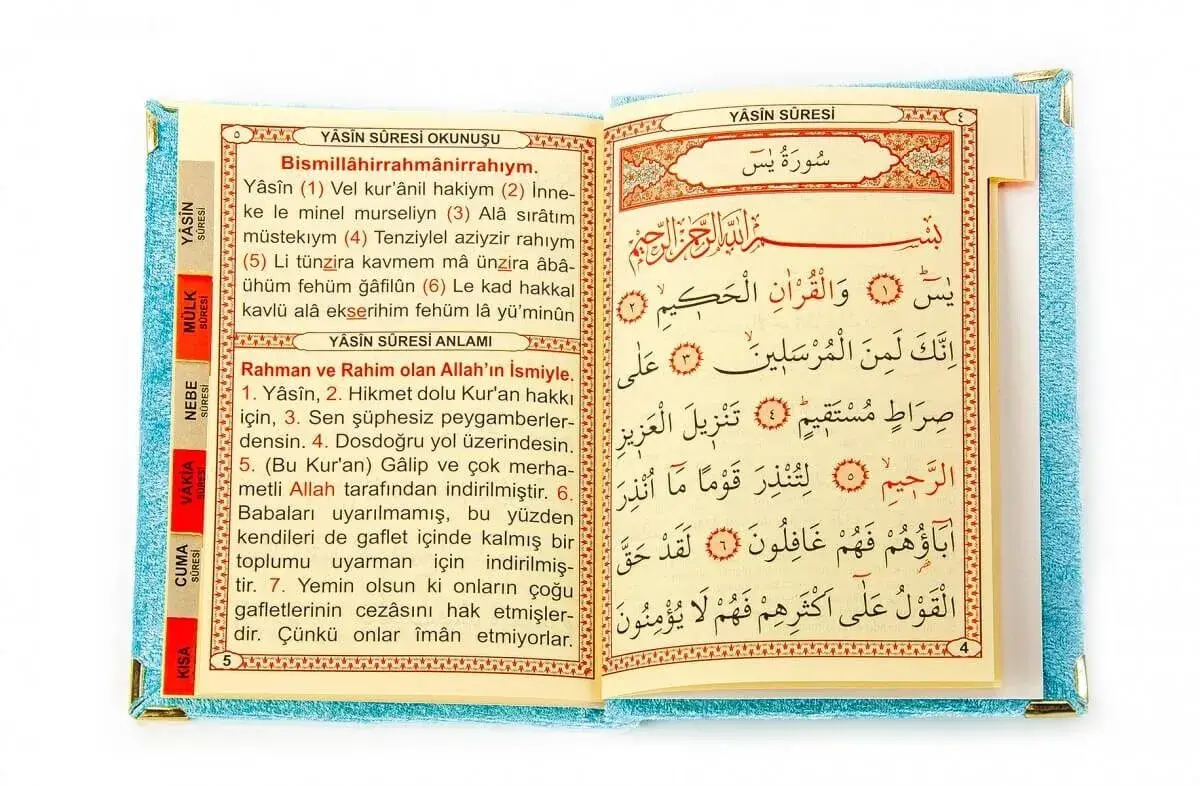 YÂSÎN SÛRESİ
٤
سُورَةُ يٰسٓ
بِسْمِ اللّٰهِ الرَّحْمٰنِ الرَّحٖيمِ
يٰسٓ ﴿١﴾ وَالْقُرْاٰنِ الْحَكٖيمِۙ ﴿٢﴾
اِنَّكَ لَمِنَ الْمُرْسَلٖينَۙ ﴿٣﴾ عَلٰى
صِرَاطٍ مُسْتَقٖيمٍؕ ﴿٤﴾ تَنْزٖيلَ الْعَزٖيزِ
الرَّحٖيمِۙ ﴿٥﴾ لِتُنْذِرَ قَوْمًا مَٓا اُنْذِرَ
اٰبَٓاؤُ۬هُمْ فَهُمْ غَافِلُونَ ﴿٦﴾ لَقَدْ حَقَّ
الْقَوْلُ عَلٰٓى اَكْثَرِهِمْ فَهُمْ لَا يُؤْمِنُونَ
4
٥
YÂSÎN SÛRESİ OKUNUŞU
Bismillâhirrahmânirrahıym.
Yâsîn (1) Vel kur’ânil hakiym (2) İnne-
ke le minel murseliyn (3) Alâ sırâtım
müstekıym (4) Tenziylel aziyzir rahıym
(5) Li tünzira kavmem mâ ünzira âbâ-
ühüm fehüm ğâfilûn (6) Le kad hakkal
kavlü alâ ekserihim fehüm lâ yü’minûn
YÂSÎN SÛRESİ ANLAMI
Rahman ve Rahim olan Allah’ın İsmiyle.
1. Yâsîn, 2. Hikmet dolu Kur'an hakkı
için, 3. Sen şüphesiz peygamberler-
densin. 4. Dosdoğru yol üzerindesin.
5. (Bu Kur'an) Gâlip ve çok merha-
metli Allah tarafından indirilmiştir. 6.
Babaları uyarılmamış, bu yüzden
kendileri de gaflet içinde kalmış bir
toplumu uyarman için indirilmiş-
tir. 7. Yemin olsun ki onların çoğu
gafletlerinin cezâsını hak etmişler-
dir. Çünkü onlar îmân etmiyorlar.
5
YÂSÎN
SÛRESİ
MÜLK
SÛRESİ
NEBE
SÛRESİ
VÂKİA
SÛRESİ
CUMA
SÛRESİ
KISA